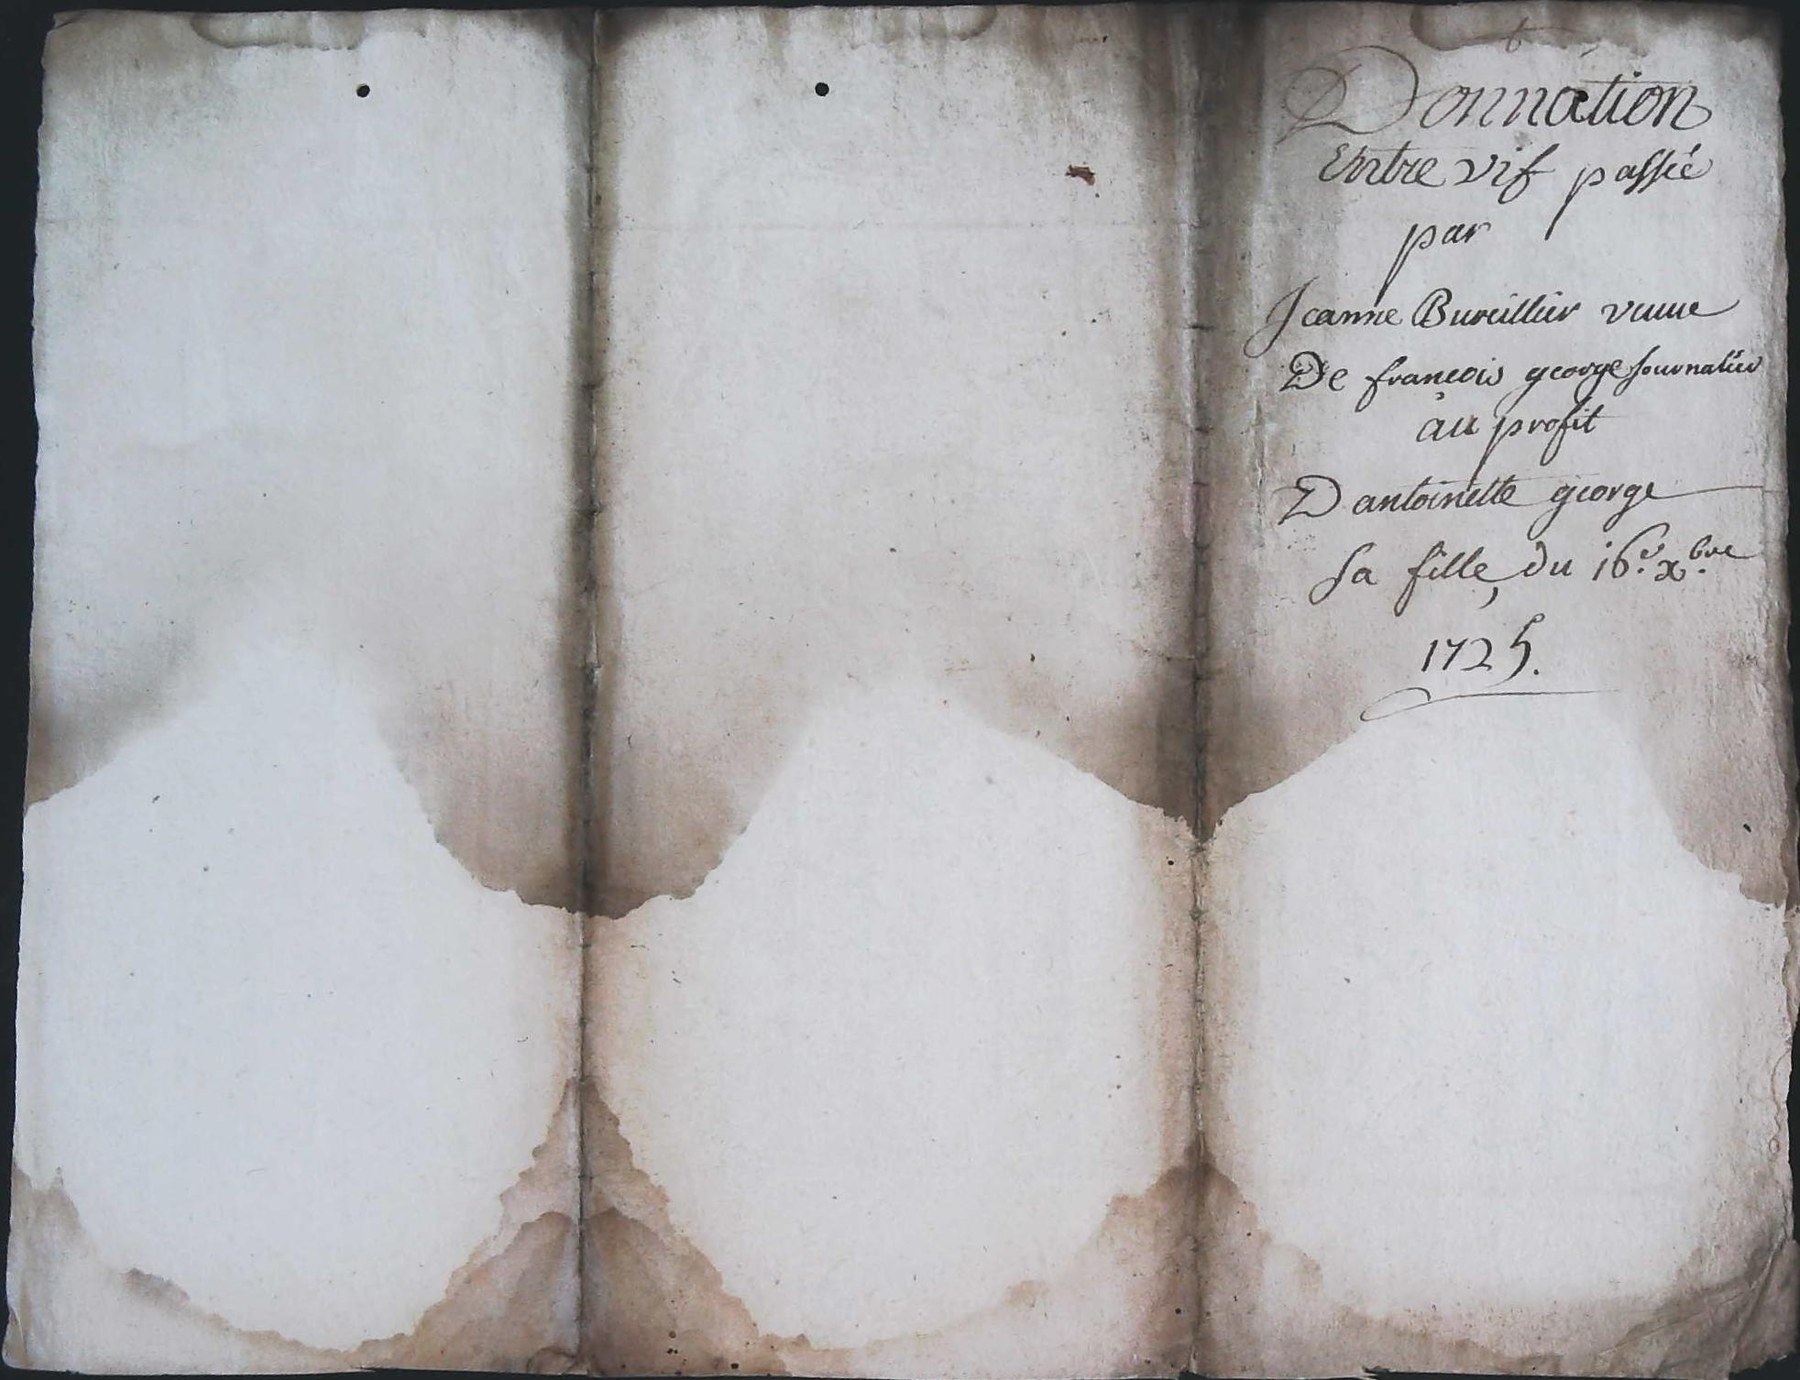 6
Donnation
Entre vif passée
par
Jeanne Bureillier veuue
De françois george Journalier
au profit
D antoinette george
sa fille, du 16.e xbre
1725.